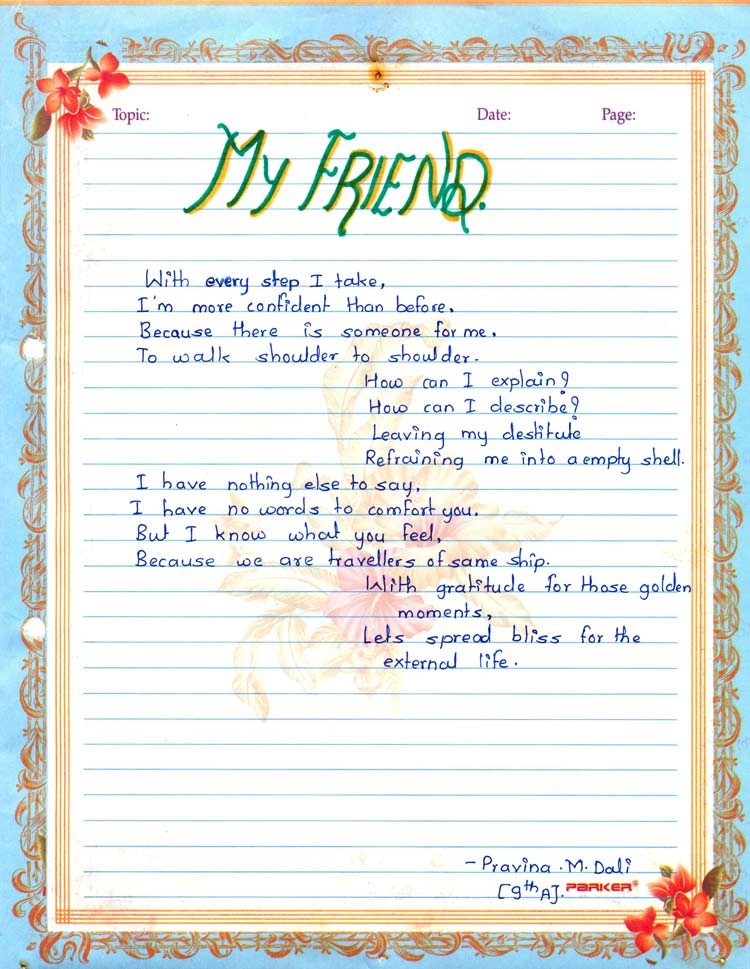 Topic:
Date:
Page:
MY FRIEND.
With every step I take,
I'm more confident than before,
Because there is someone for me,
To walk shoulder to shoulder.
How can I explain?
How can I describe?
Leaving my destitute
Refraining me into a empty shell.
I have nothing else to say,
I have no words to comfort you.
But I know what you feel,
Because we are travellers of same ship.
With gratitude for those golden
moments,
Lets spread bliss for the
external life.
- Pravina . M. Dali
[9th A].
PARKER